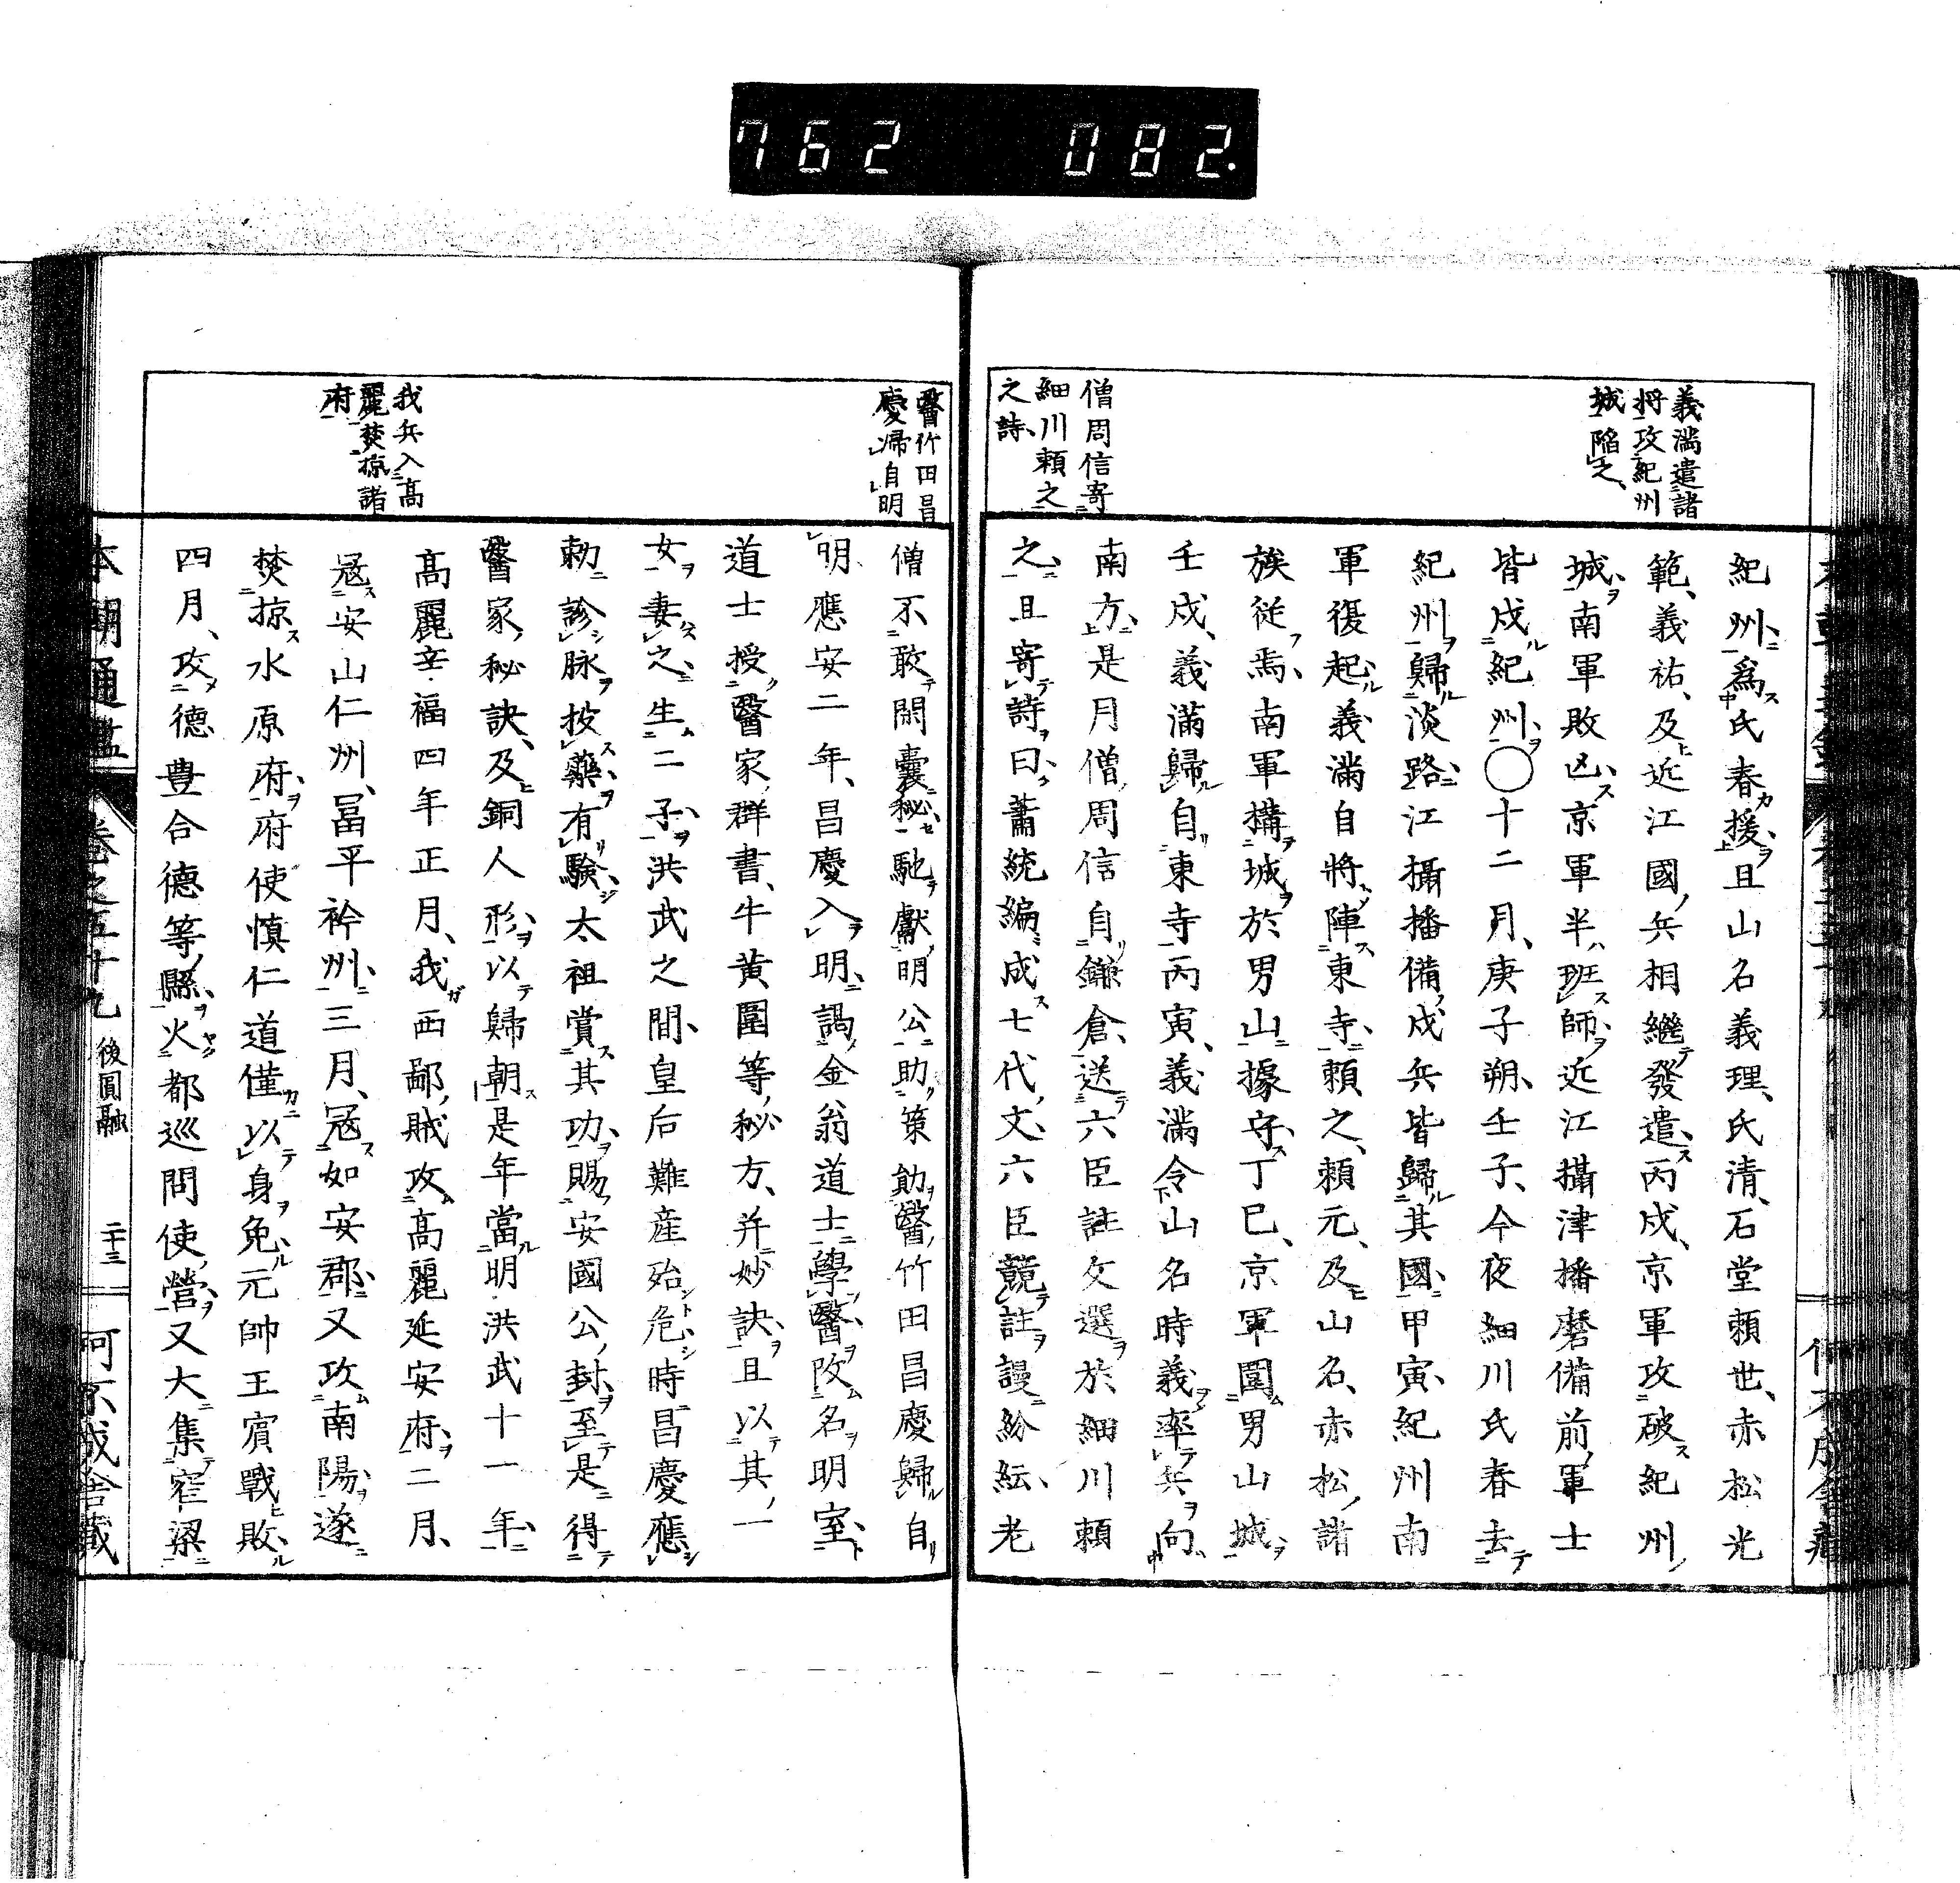 762 082.
義滿遣諸
將攻紀州
城陷之、
僧周信寄
細川頼之
之詩
紀州爲氏春援且山名義理、氏清、石堂頼世、赤松光
範、義祐、及近江國兵相繼發遣丙戌、京軍攻破紀州
城南軍敗凶京軍半班師近江攝津播磨備前軍士
皆戍紀州〇十二月、庚子朔、壬子、今夜細川氏春去
紀州歸淡路江攝播備戍兵皆歸其國甲寅紀州南
軍復起義滿自將陣東寺頼之、頼元、及山名、赤松諸
族從焉、南軍搆城於男山據守丁巳、京軍圍男山城
壬戌、義滿歸自東寺丙寅、義滿令山名時義率兵向
南方是月僧周信自鎌倉送六臣註文選於細川頼
之且寄詩曰蕭統編成七代文六臣競註謾紛紜老
醫竹田昌
慶帰自明
我兵入高
麗焚掠諸
府
僧不敢閑嚢秘馳獻明公助策勛醫竹田昌慶歸自
明應安二年、昌慶入明謁金翁道士學醫改名明室
道士授醫家群書、牛黄圓等秘方、并妙訣且以其一
女妻之生二子洪武之間皇后難産殆危時昌慶應
勅診脉投藥有驗太祖賞其功賜安國公封至是得
醫家秘訣及銅人形以歸朝是年當明洪武十一年
高麗辛禑四年正月、我西鄙賊攻高麗延安府二月、
冦安山仁州、冨平衿州三月、冦如安郡又攻南陽遂
焚掠水原府府使慎仁道僅以身免元帥王賓戰敗
四月、攻德豊合德等縣火都巡問使營又大集窄梁
本朝通鑑 卷之五十九 後圓融 二十三